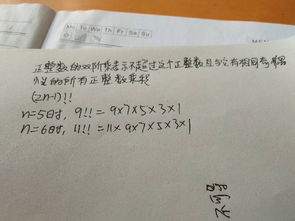 Mo Tu We Th Fr Sa Su
正整数的双阶乘表示不超过这个正整数且与它有相同奇偶
性的所有正整数乘积
(2n-1)!!
n=5时, 9!! = 9×7×5×3×1
n=6时, 11!! = 11×9×7×5×3×1